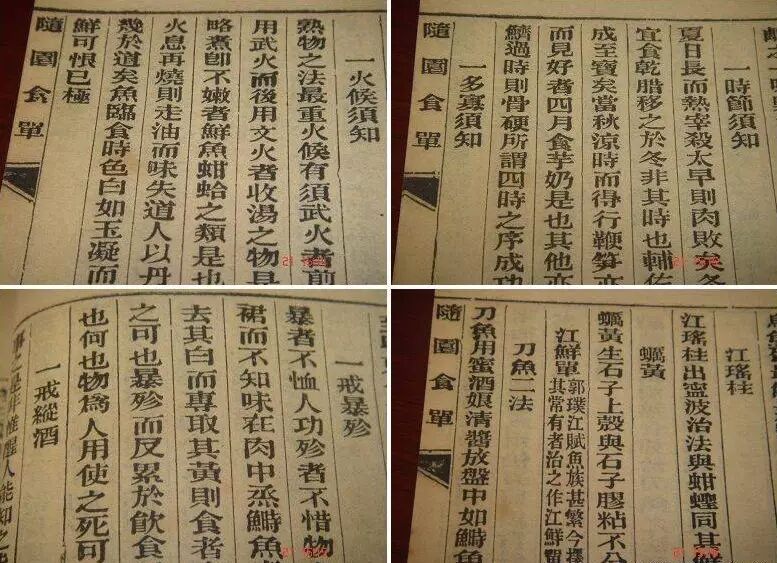 一火候須知
熟物之法最重火候有須武火者前
用武火而後用文火者收湯之物是
略煮卽不嫩者鮮魚蚶蛤之類是也
火息再燒則走油而味失道人以丹
幾於道矣魚臨食時色白如玉凝而
鮮可恨已極
隨園食單
一時節須知
夏日長而熱宰殺太早則肉敗矣冬
宜食乾腊移之於冬非其時也輔佐
成至寳矣當秋涼時而得行鞭笋亦
而見好者四月食芋奶是也其他亦
鱭過時則骨硬所謂四時之序成功
一多寡須知
隨園食單
一戒暴殄
暴者不恤人功殄者不惜物
裙而不知味在肉中烝鰣魚
去其白而專取其黃則食者
之可也暴殄而反累於飲食
也何也物爲人用使之死可
一戒縱酒
事之是非惟醒人能知之
江瑤柱
江瑤柱出寧波治法與蚶蟶同其鮮
蠣黃
蠣黃生石子上殼與石子膠粘不分
江鮮單
郭璞江賦魚族甚繁今擇
其常有者治之作江鮮單
刀魚二法
刀魚用蜜酒娘清醬放盤中如鰣魚
隨園食單